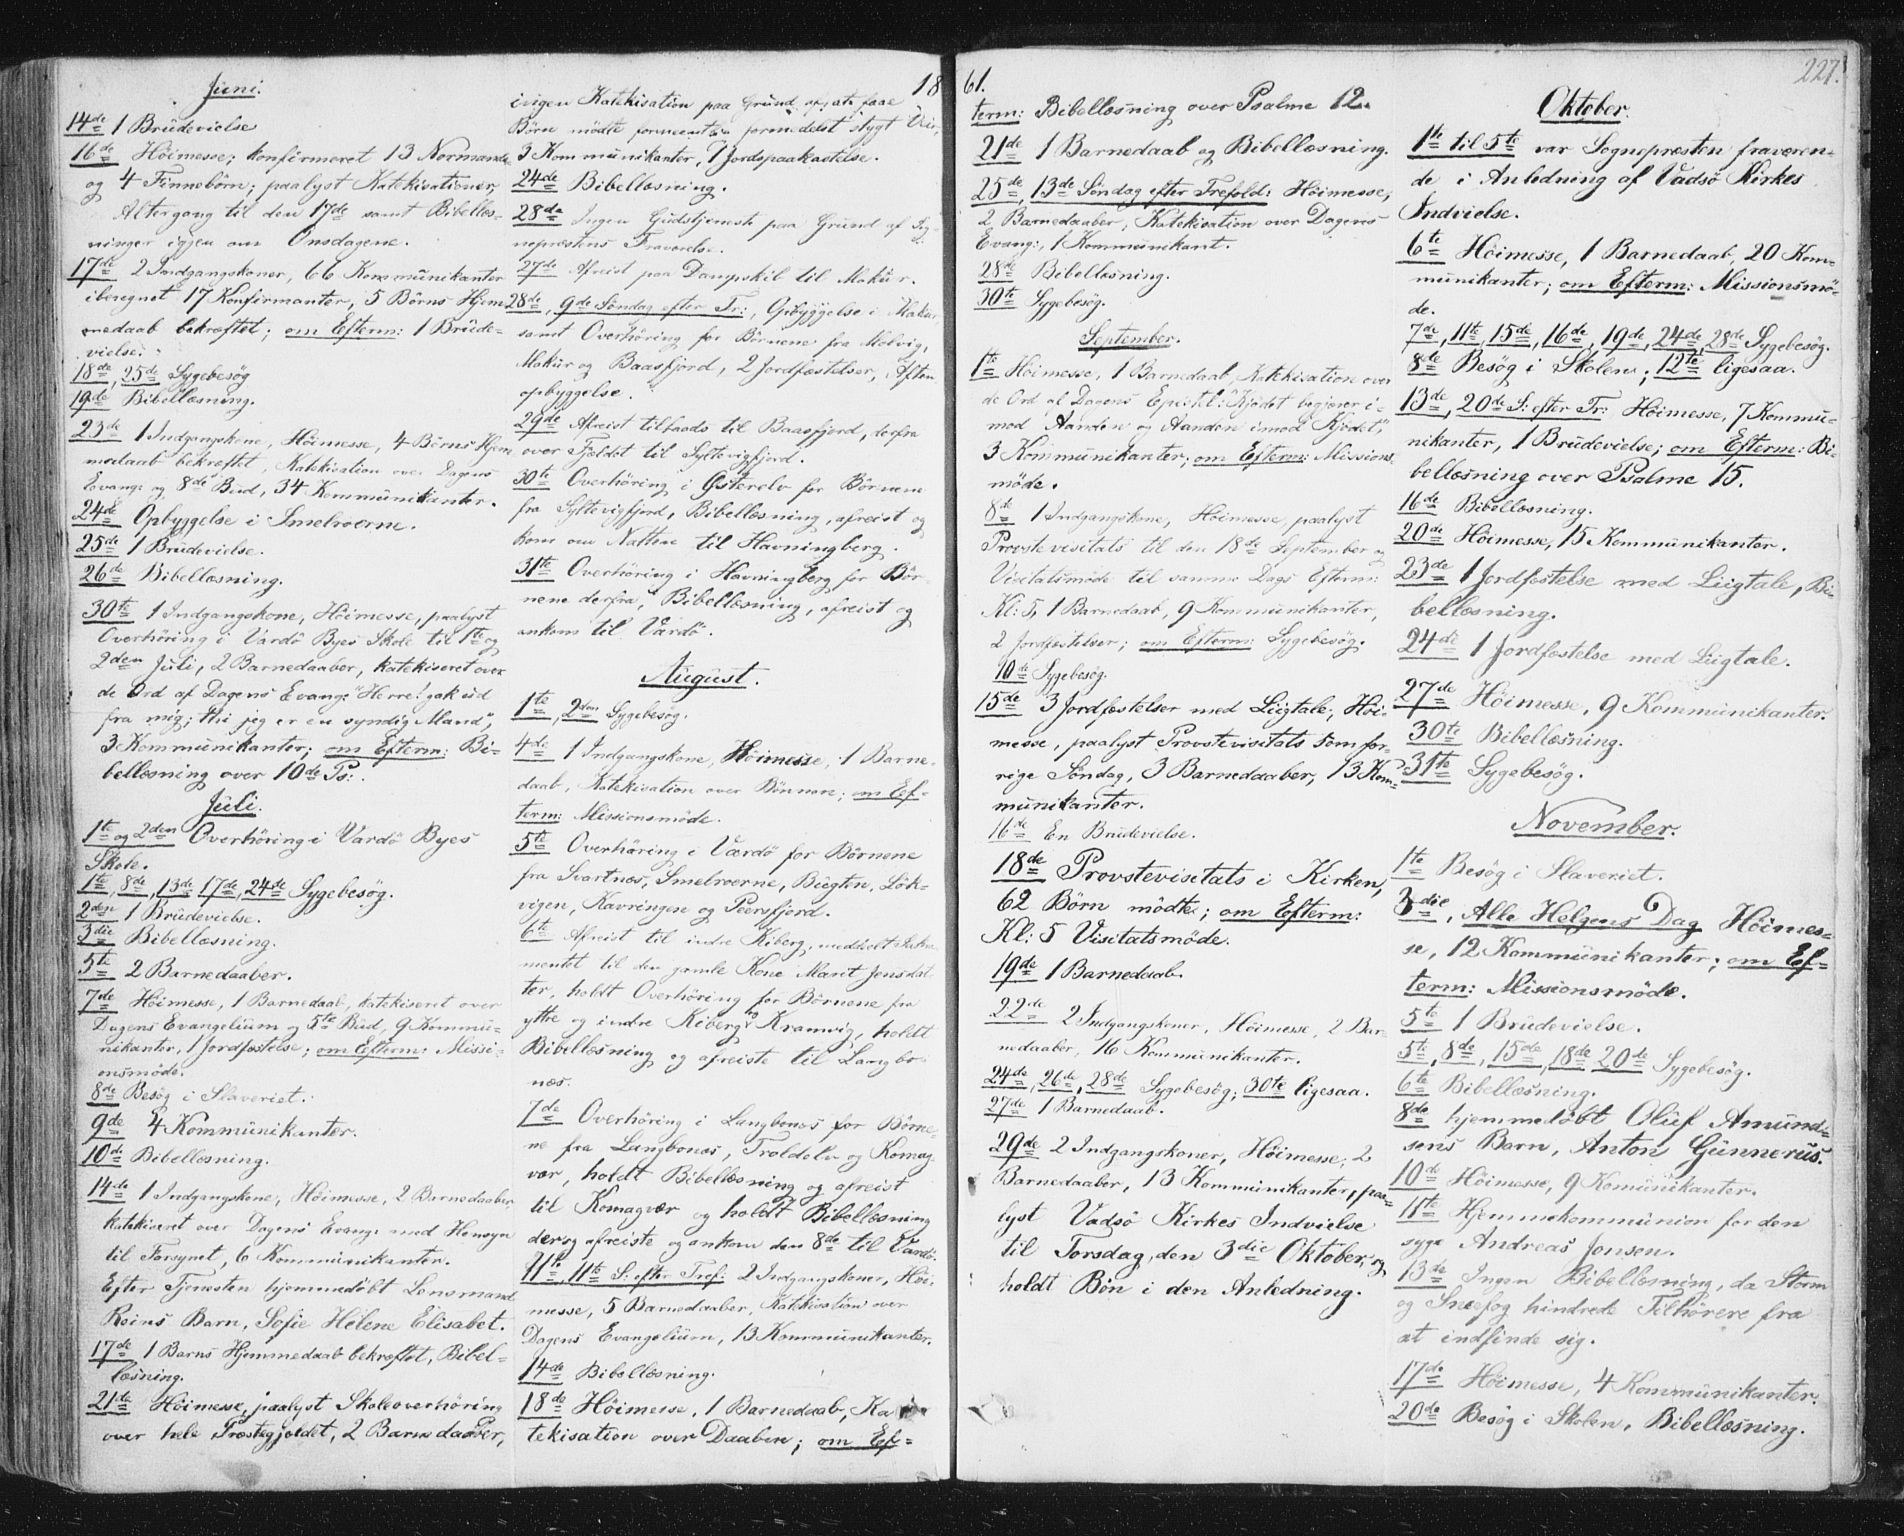 Juni.
14de 1 Brüdevielse
16de Höimesse; konfirmeret 13 Normænds
og 4 Finnebörn; paalyst Katekisationer,
Altergang til den 17de samt Bibellæs-
ninger igjen om Onsdagene.
17de 2 Indgangskoner, 66 Kommünikanter
iberegnet 17 Konfirmanter, 5 Börns Hjem-
medaab bekræftet; om Efterm: 1 Brüde-
vielse.
18de, 25de Sygebesög
19de Bibellæsning.
23de 1 Indgangskone, Höimesse, 4 Börns Hjem
medaab bekræftet, Katekisation over Dagens
Evang: og 8de Bud, 34 Kommünikanter.
24de Opbyggelse i Smelrorerne.
25de 1 Brüdevielse.
26de Bibellæsning.
30te 1 Indgangskone, Höimesse, paalyst
Overhöring i Vardö Byes Skole til 1te og
2den Juli, 2 Barnedaaber, katekiseret over
de Ord af Dagens Evang: "Herre! gak üd
fra mig; thi jeg er en syndig Mand",
3 Kommünikanter; om Efterm: Bi-
bellæsning over 10de Ps:.
Jüli.
1te og 2den Overhöring i Vardö Byes
Skole.
1te, 8de, 13de 17de, 24de Sygebesög.
2den 1 Brüdevielse.
3die Bibellæsning.
5te 2 Barnedaaber.
7de Höimesse, 1 Barnedaab, katekiseret over
Dagens Evangelium og 5te Bud, 9 Kommü-
nikanter, 1 Jordfæstelse; om Efterm: Missi-
onsmöde.
8de Besög i Slaveriet.
9de 4 Kommünikanter.
10de Bibellæsning.
14de 1 Indgangskone, Höimesse, 2 Barnedaaber,
katekiseret over Dagens Evang: med Hensyn
til Forsynet, 6 Kommünikanter.
Efter Tjenesten hjemmedöbt Lensmand
Reins Barn, Sofie Helene Elisabet.
17de 1 Barns Hjemmedaab bekræftet, Bibel-
læsning.
21de Höimesse, paalyst Skoleoverhöring
over hele Præstegjeldet, 2 Barnedaaber,
18
ingen Katekisation paa Grund af, at faae
Börn mödte formedelst stygt Veir,
3 Kommünikanter, 1 Jordspaakastelse.
24de Bibellæsning.
28de Ingen Gudstjeneste paa Grund af Sog-
nepræstens Fraværelse.
27de Afreist paa Dampskib til Makür.
28de, 9de Söndag efter Tr:, Opbyggelse i Makur
samt Overhöring for Börnene fra Molvig,
Makür og Baasfjord, 2 Jordfæstelser, Aften
opbyggelse.
29de Afreist tilfods til Baasfjord, derfra
over Fjeldet til Syltevigfjord.
30te Overhöring i Ysterelv for Börnene
fra Syltevigfjord, Bibellæsning, afreist og
kom om Natten til Havningberg.
31te Overhöring i Havningberg for Bör-
nene derfra, Bibellæsning, afreist og
ankom til Vardö.
August.
1te, 2den Sygebesög.
4de 1 Indgangskone, Höimesse, 1 Barne-
daab, Katekisation over Bönnen; om Ef-
term: Missionsmöde.
5te Overhöring i Vardö for Börnene
fra Svartnæs, Smelrorerne, Bügten, Lök-
vigen, Kavringen og Peersfjord.
6te Afreist til indre Kiberg, meddeelt Sakra-
mentet til den gamle Kone Marit Jonsdat-
ter, holdt Overhöring for Börnene fra
ytre og indre Kiberg og Kramvig, holdt
Bibellæsning og afreiste til Langbu-
næs.
7de Overhöring i Langbunæs for Börne-
ne fra Langbunæs, Troldelv og Komag-
vær, holdt Bibellæsning og afreist
til Komagvær og holdt Bibellæsning
der og afreiste og ankom den 8de til Vardö.
11te, 11te S: efter Tref: 2 Indgangskoner, Höi-
messe, 5 Barnedaaber, Katekisation over
Dagens Evangeliüm, 13 Kommünikanter.
14de Bibellæsning.
18de Höimesse, 1 Barnedaab, Ka-
tekisation over Daaben; om Ef-
61.
227.
term: Bibellæsning over Psalme 12.
21de 1 Barnedaab og Bibellæsning.
25de, 13de Söndag efter Trefold: Höimesse,
2 Barnedaaber, Katekisation over Dagens
Evang:, 1 Kommünikant.
28de Bibellæsning.
30te Sygebesög.
September.
1te Höimesse, 1 Barnedaab, Katekisation over
de Ord af Dagens Epistel: "Kjödet begjerer i-
mod Aanden og Aanden imod Kjödet",
3 Kommünikanter; om Efterm: Missions-
möde.
8de 1 Indgangskone, Höimesse, paalyst
Provstevisitats til den 18de September og
Visitatsmöde til samme Dags Efterm:
Kl: 5, 1 Barnedaab, 9 Kommünikanter,
2 Jordfæstelser; om Efterm: Sygebesög.
10de Sygebesög.
15de 3 Jordfæstelser med Liigtale, Höi-
messe, paalyst Provstevisitats som for-
rige Söndag, 3 Barnedaaber, 13 Kom-
munikanter.
16de En Brüdevielse.
18de Provstevisitats i Kirken,
62 Börn mödte; om Efterm:
Kl: 5 Visitatsmöde.
19de 1 Barnedaab.
22de 2 Indgangskoner, Höimesse, 2 Bar-
nedaaber, 16 Kommunikanter.
24de, 26de, 28de Sygebesög; 30te ligesaa.
27de 1 Barnedaab.
29de 2 Indgangskoner, Höimesse, 2
Barnedaaber, 13 Kommünikanter, paa-
lyst Vadsö Kirkes Indvielse
til Torsdag, den 3die Oktober, og
holdt Bön i den Anledning.
Oktober.
1te til 5te var Sognepræsten fraværen-
de i Anledning af Vadsö Kirkes
Indvielse.
6te Höimesse, 1 Barnedaab, 20 Kom-
münikanter; om Efterm: Missionsmö-
de.
7de, 11te, 15de, 16de, 19de, 24de 28de Sygebesög.
8de Besög i Skolen; 12te ligesaa.
13de, 20de S: efter Tr: Höimesse, 7 Kommü-
nikanter, 1 Brüdevielse; om Efterm: Bi-
bellæsning over Psalme 15.
16de Bibellæsning.
20de Höimesse, 15 Kommünikanter.
23de 1 Jordfæstelse med Liigtale, Bi-
bellæsning.
24de 1 Jordfæstelse med Liigtale.
27de Höimesse, 9 Kommünikanter.
30te Bibellæsning.
31te Sygebesög.
November.
1te Besög i Slaveriet.
3die, Alle Helgens Dag Höimes-
se, 12 Kommünikanter; om Ef-
term: Missionsmöde.
5te 1 Brüdevielse.
5te, 8de, 15de, 18de 20de Sygebesög.
6te Bibellæsning.
8de hjemmedöbt Oluf Amund-
sens Barn, Anton Günnerüs.
10de Höimesse, 9 Komünikanter.
11te Hjemmekommünion for den
syge Andreas Jonsen.
13de Ingen Bibellæsning, da Storm
og Sneefog hindrede Tilhörere fra
at indfinde sig.
17de Höimesse, 4 Kommünikanter.
20de Besög i Skolen, Bibellæsning.